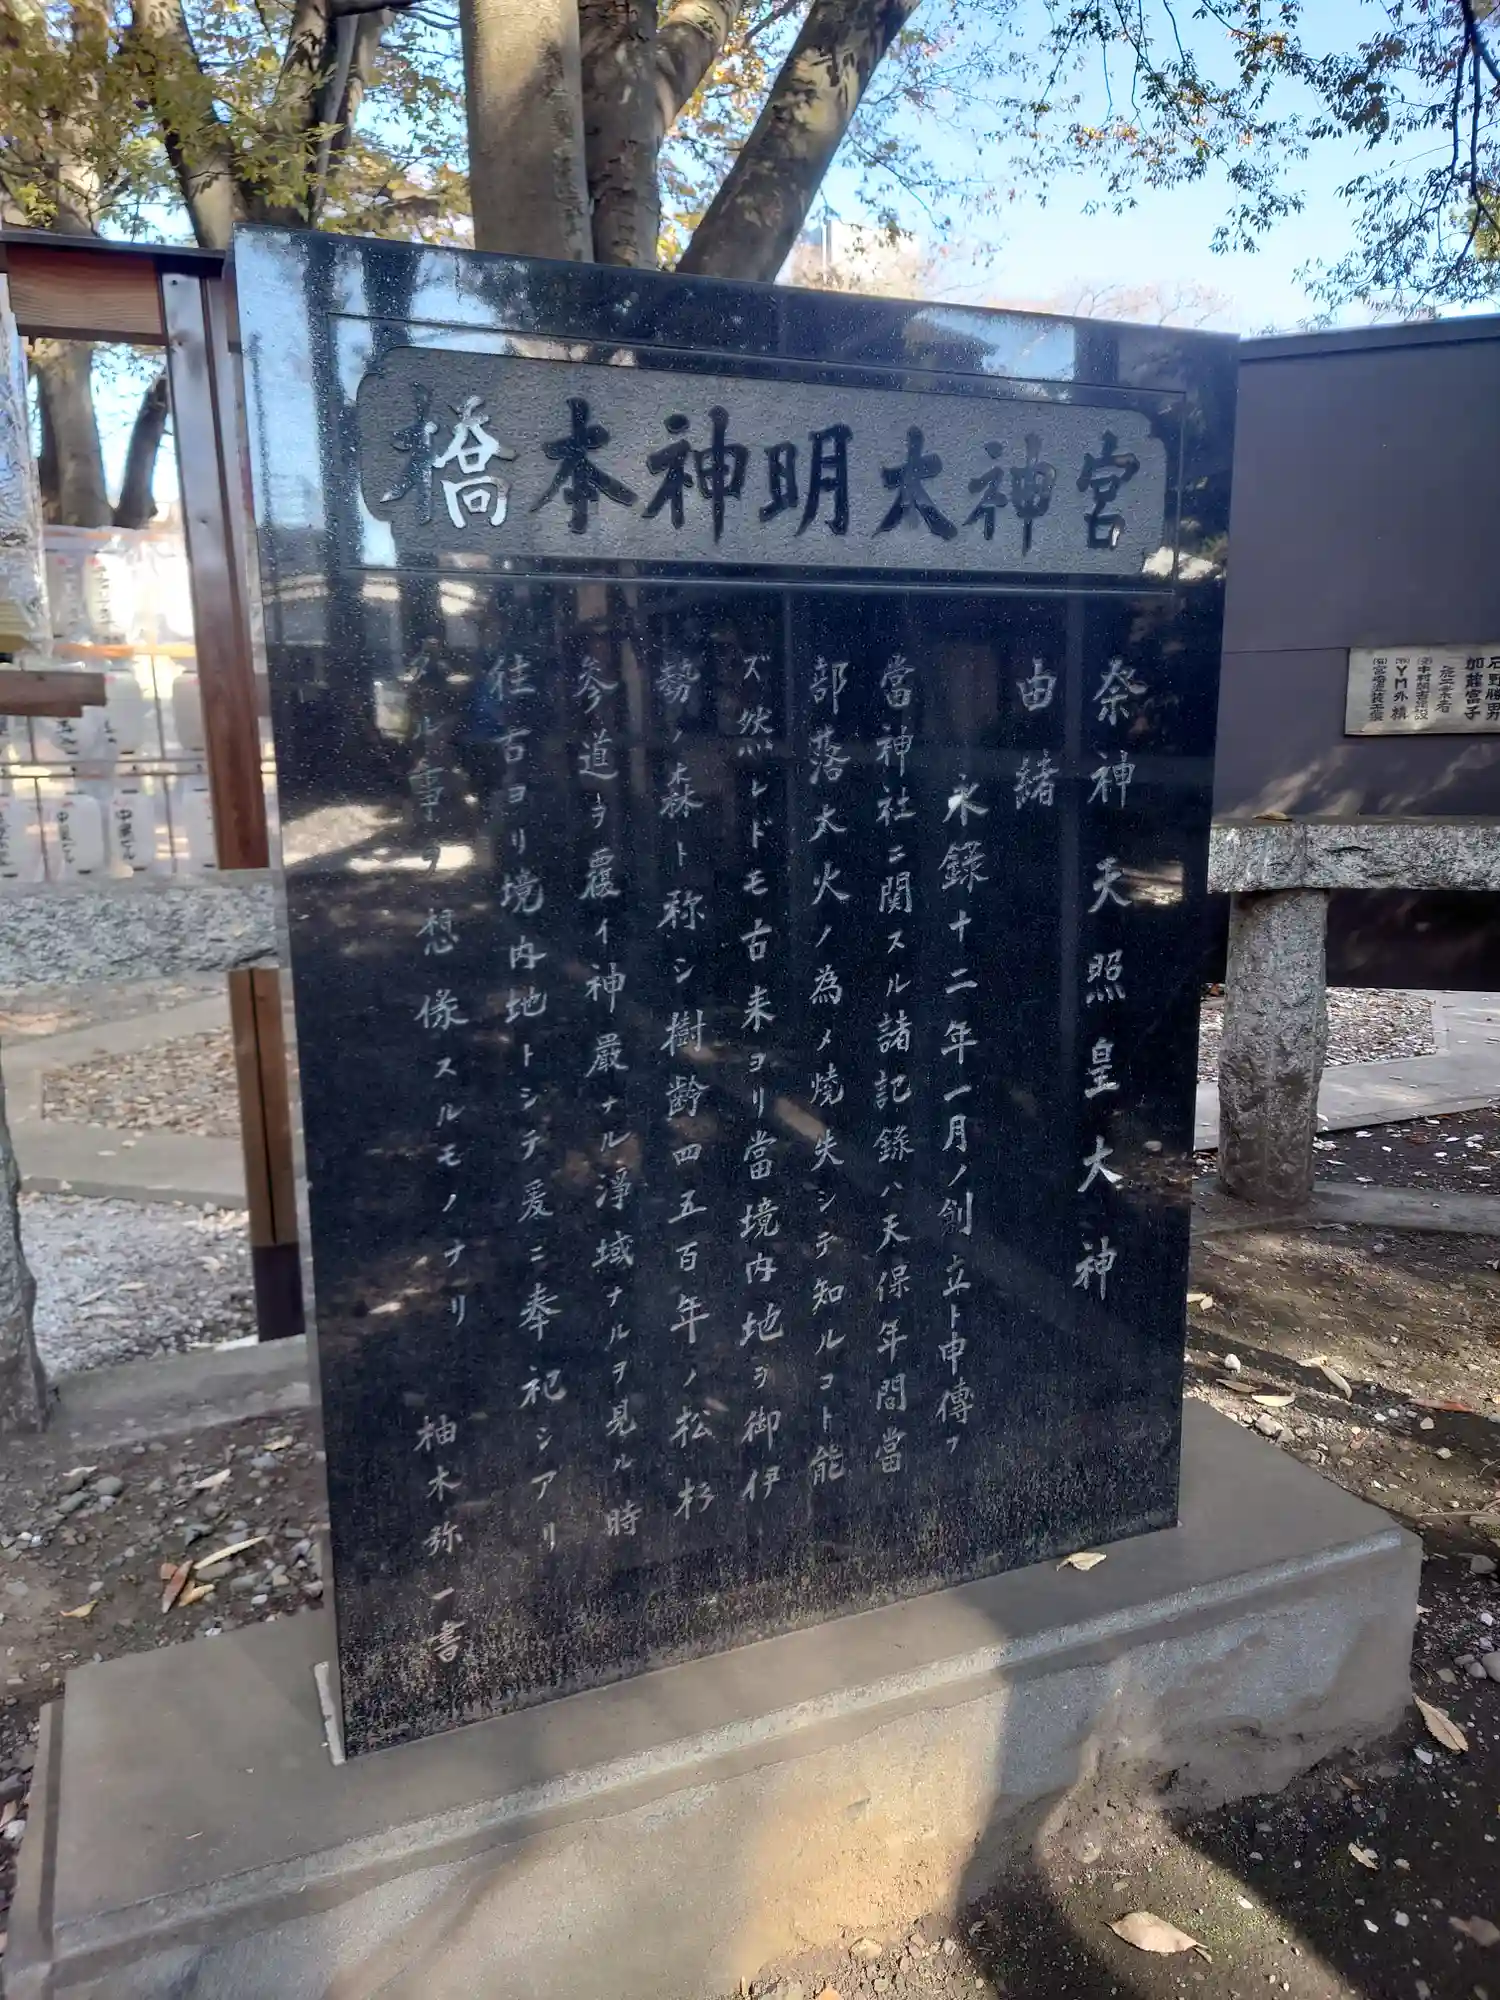 橋本神明大神宮
祭神 天照皇大神
由緒
永録十二年一月ノ創立ト申傳フ
當神社ニ関スル諸記録ハ天保年間當
部落大火ノ為メ焼失シテ知ルコト能
ズ然レドモ古来ヨリ當境内地ヲ御伊
勢ノ森ト称シ樹齢四五百年ノ松杉
参道ヲ覆イ神厳ナル浄域ナルヲ見ル時
往古ヨリ境内地トシテ爰ニ奉祀シアリ
タル事ヲ想像スルモノナリ 柚木弥一書
石野勝男
加藤富子
施工業者
㈲YM外構